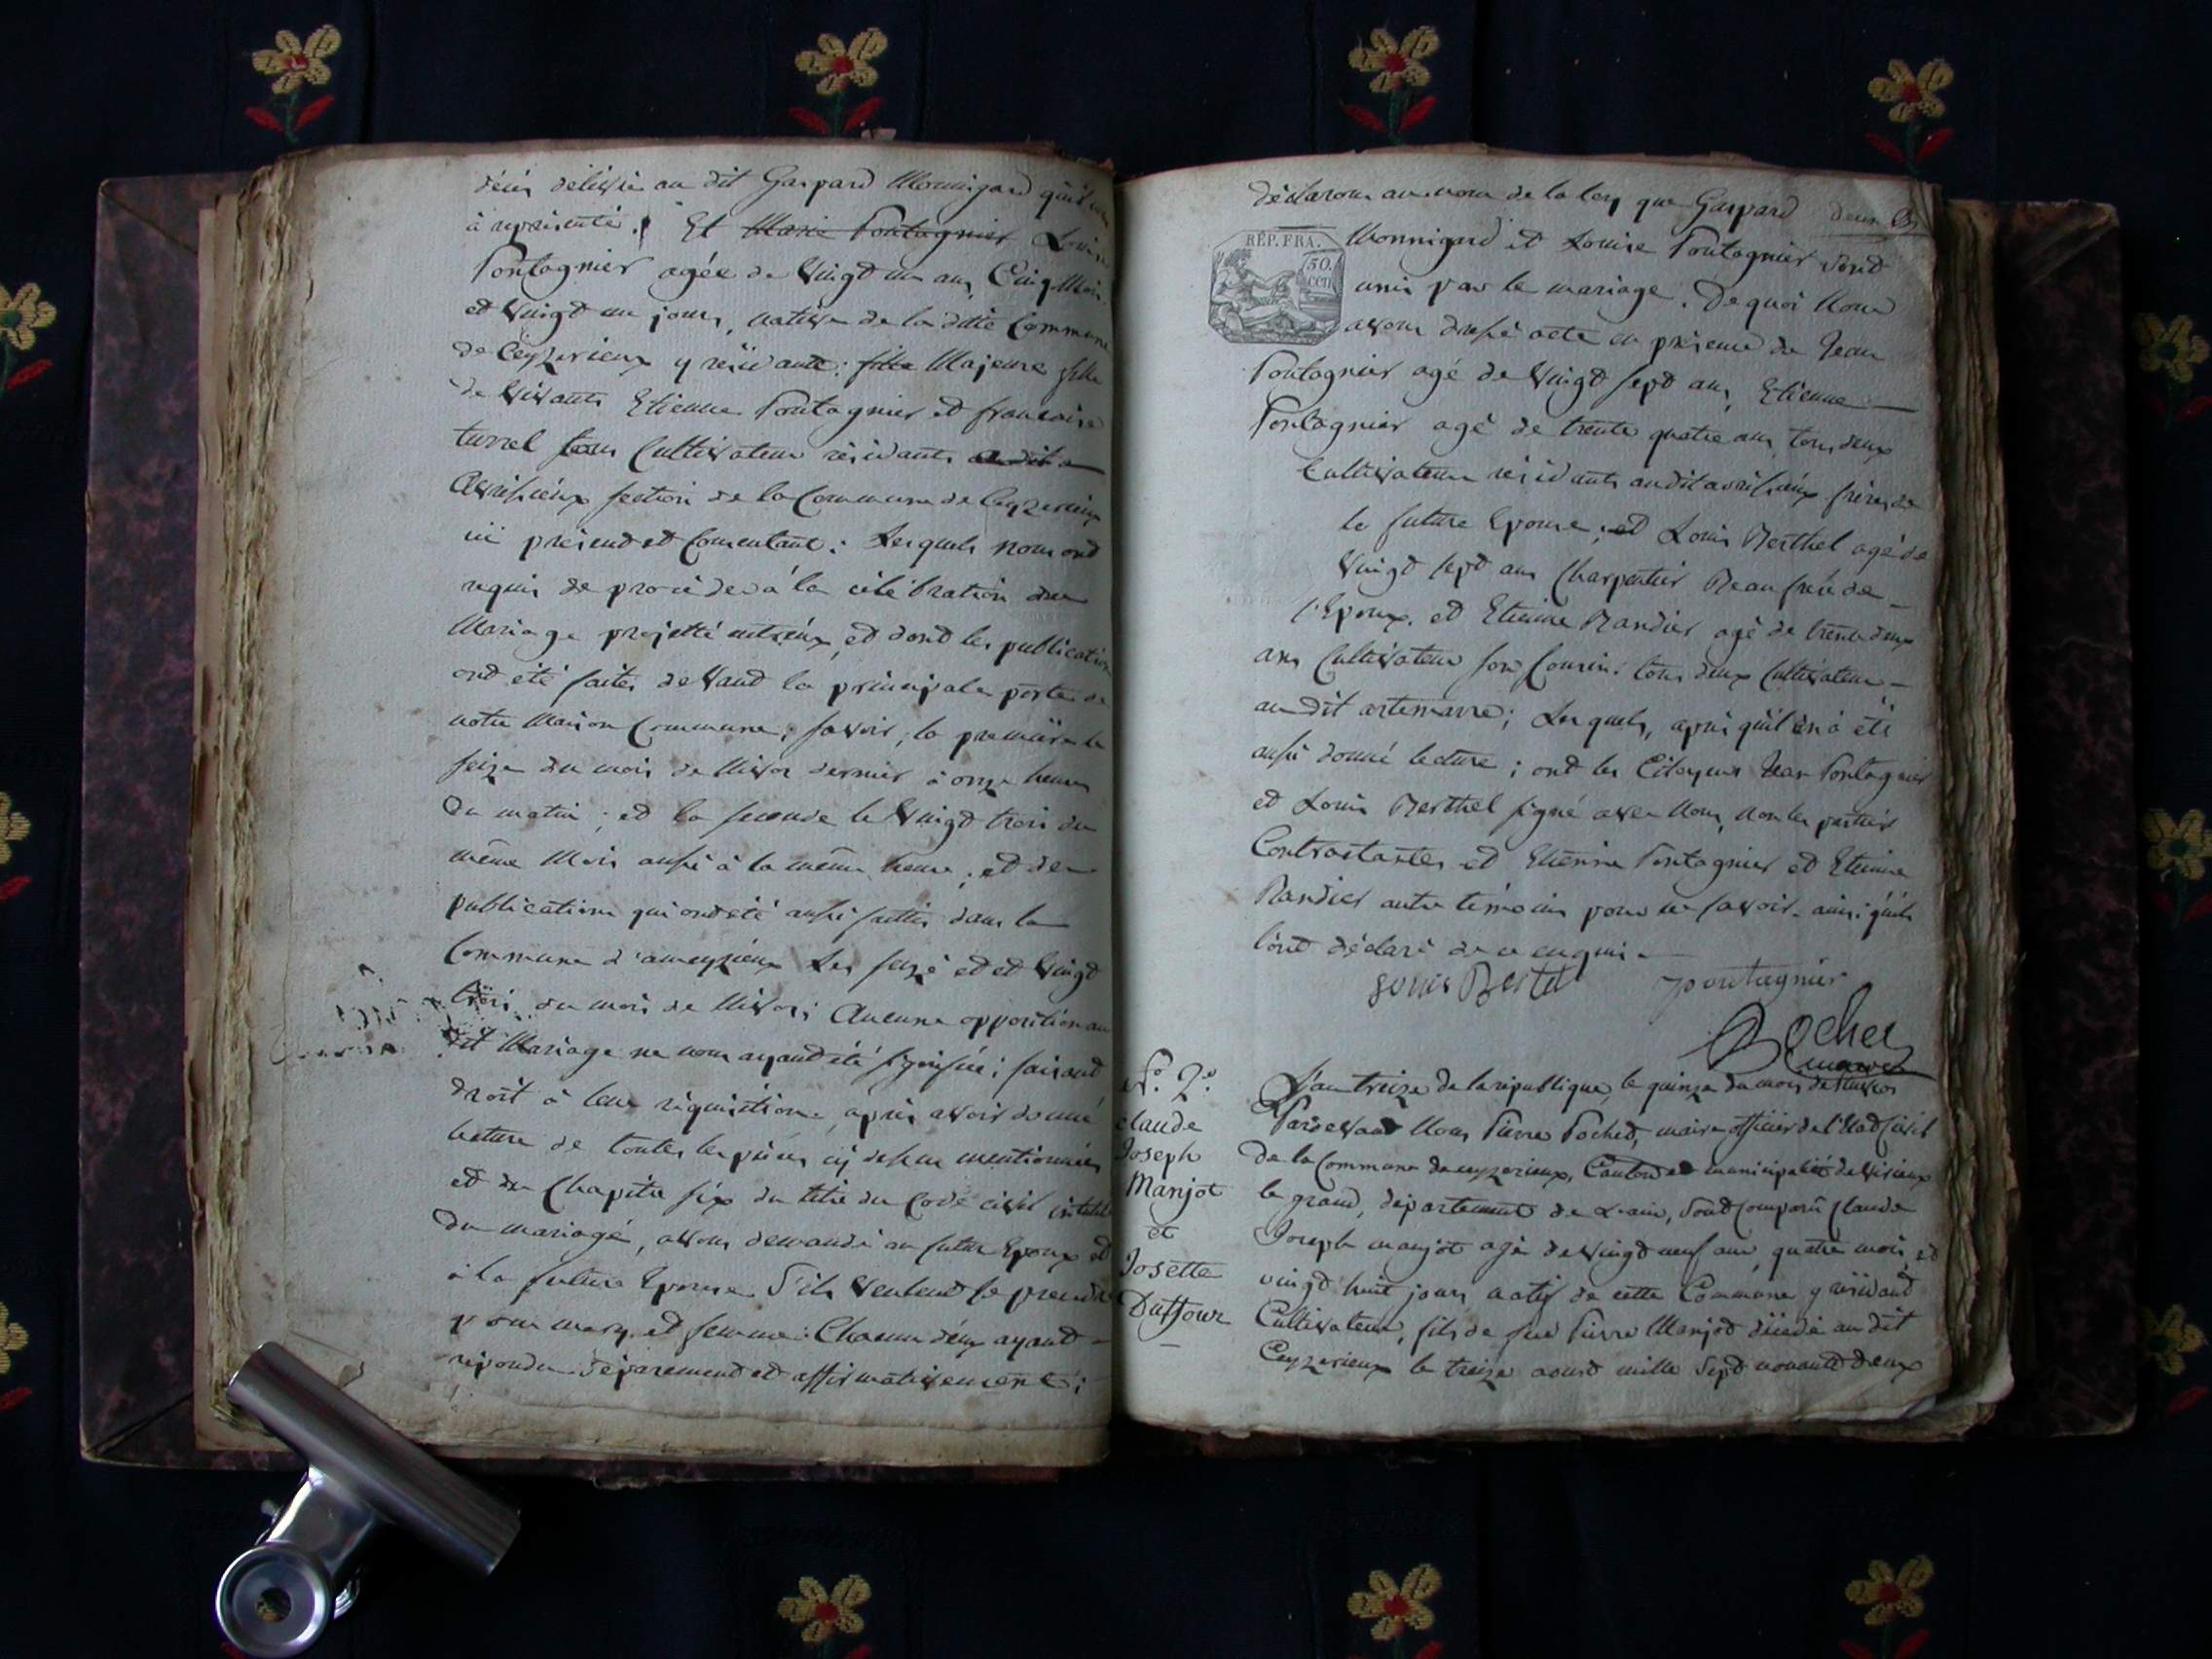 décès délivré au dit Gaspard Monnigard qu'il
à représenté. Et Marie Pontagnier Louise
Pontagnier agée de Vingt un ans, Cinq Mois
et Vingt un jours, native de la ditte Commune
de Ceyzerieux y résidante: fille Majeure fille
de vivants Etienne Pontagnier et francoise
turrel tous Cultivateurs résidants
section de la Commune de Ceyzerieux
ici présend et Consentant: Lesquels nous ont
requis de procéder à la célébration du
Mariage projetté entr'eux, et dont les publications
ont été faites devand la principale porte de
notre Maison Commune; savoir; la premiere le
seize du mois de Nivos dernier à onze heures
du matin; et la seconde le Vingt trois du
même Mois aussi à la même heure, et des
publications qui ont été aussi faittes dans la
Commune d'ameyzieux Les seize et et Vingt
trois du mois de Nivos; Aucune opposition au
dit Mariage ne nous ayand été signifiée; faisand
droit à leur réquisition, après avoir donné
lecture de toutes les pièces cy dessus mentionnées
et du Chapitre six du titre du Code civil intitulé
du mariage, avons demandé au futur Epoux et
à la future Epouse S'ils veulent se prendre
pour mary et femme: Chacun d'eux ayand
répondu séparement et affirmativement;
déclarons au nom de la loy que Gaspard
deux
RÉP. FRA.
50.
cen
Monnigard et Louise Pontagnier sont
unis par le mariage. De quoi Nous
avons dressé acte en présence de Jean
Pontagnier agé de Vingt sept ans, Etienne
Pontagnier agé de trente quatre ans, tous deux
Cultivateurs résidants audit frères de
la future Epouse; et Louis Berthel agé de
Vingt sept ans Charpentier Beaufrère de
l'Epoux. et Etienne Bandier agé de trente deux
ans Cultivateur son Cousin: tous deux Cultivateurs
au dit artemarre; Lesquels, après qu'il en à été
aussi donné lecture; ont les Citoyens Jean Pontagnier
et Louis Berthel signé avec Nous, non les parties
Contractantes et Etienne Pontagnier et Etienne
Bandier autre témoins pour ne savoir. ainsi qu'ils
l'ont déclaré de ce enquis.
Louis Bertel
pontagnier
Pochet
maire
N.° 2.°
claude
Joseph
Manjot
et
Josette
Duffour
L'an treize de la république, le quinze du mois de
Pardevant Nous Pierre Pochet, maire officier de l'Etat Civil
de la Commune de ceyzerieux, Canton et municipalité de Virieux
le grand, département de L'ain, sont Comparû Claude
Joseph manjot agé de vingt neuf ans, quatre mois, et
vingt huit jours natif de cette Commune y résidant
Cultivateur, fils de feu Pierre Manjot décédé au dit
Ceyzerieux le treize aoust mille sept nonante deux